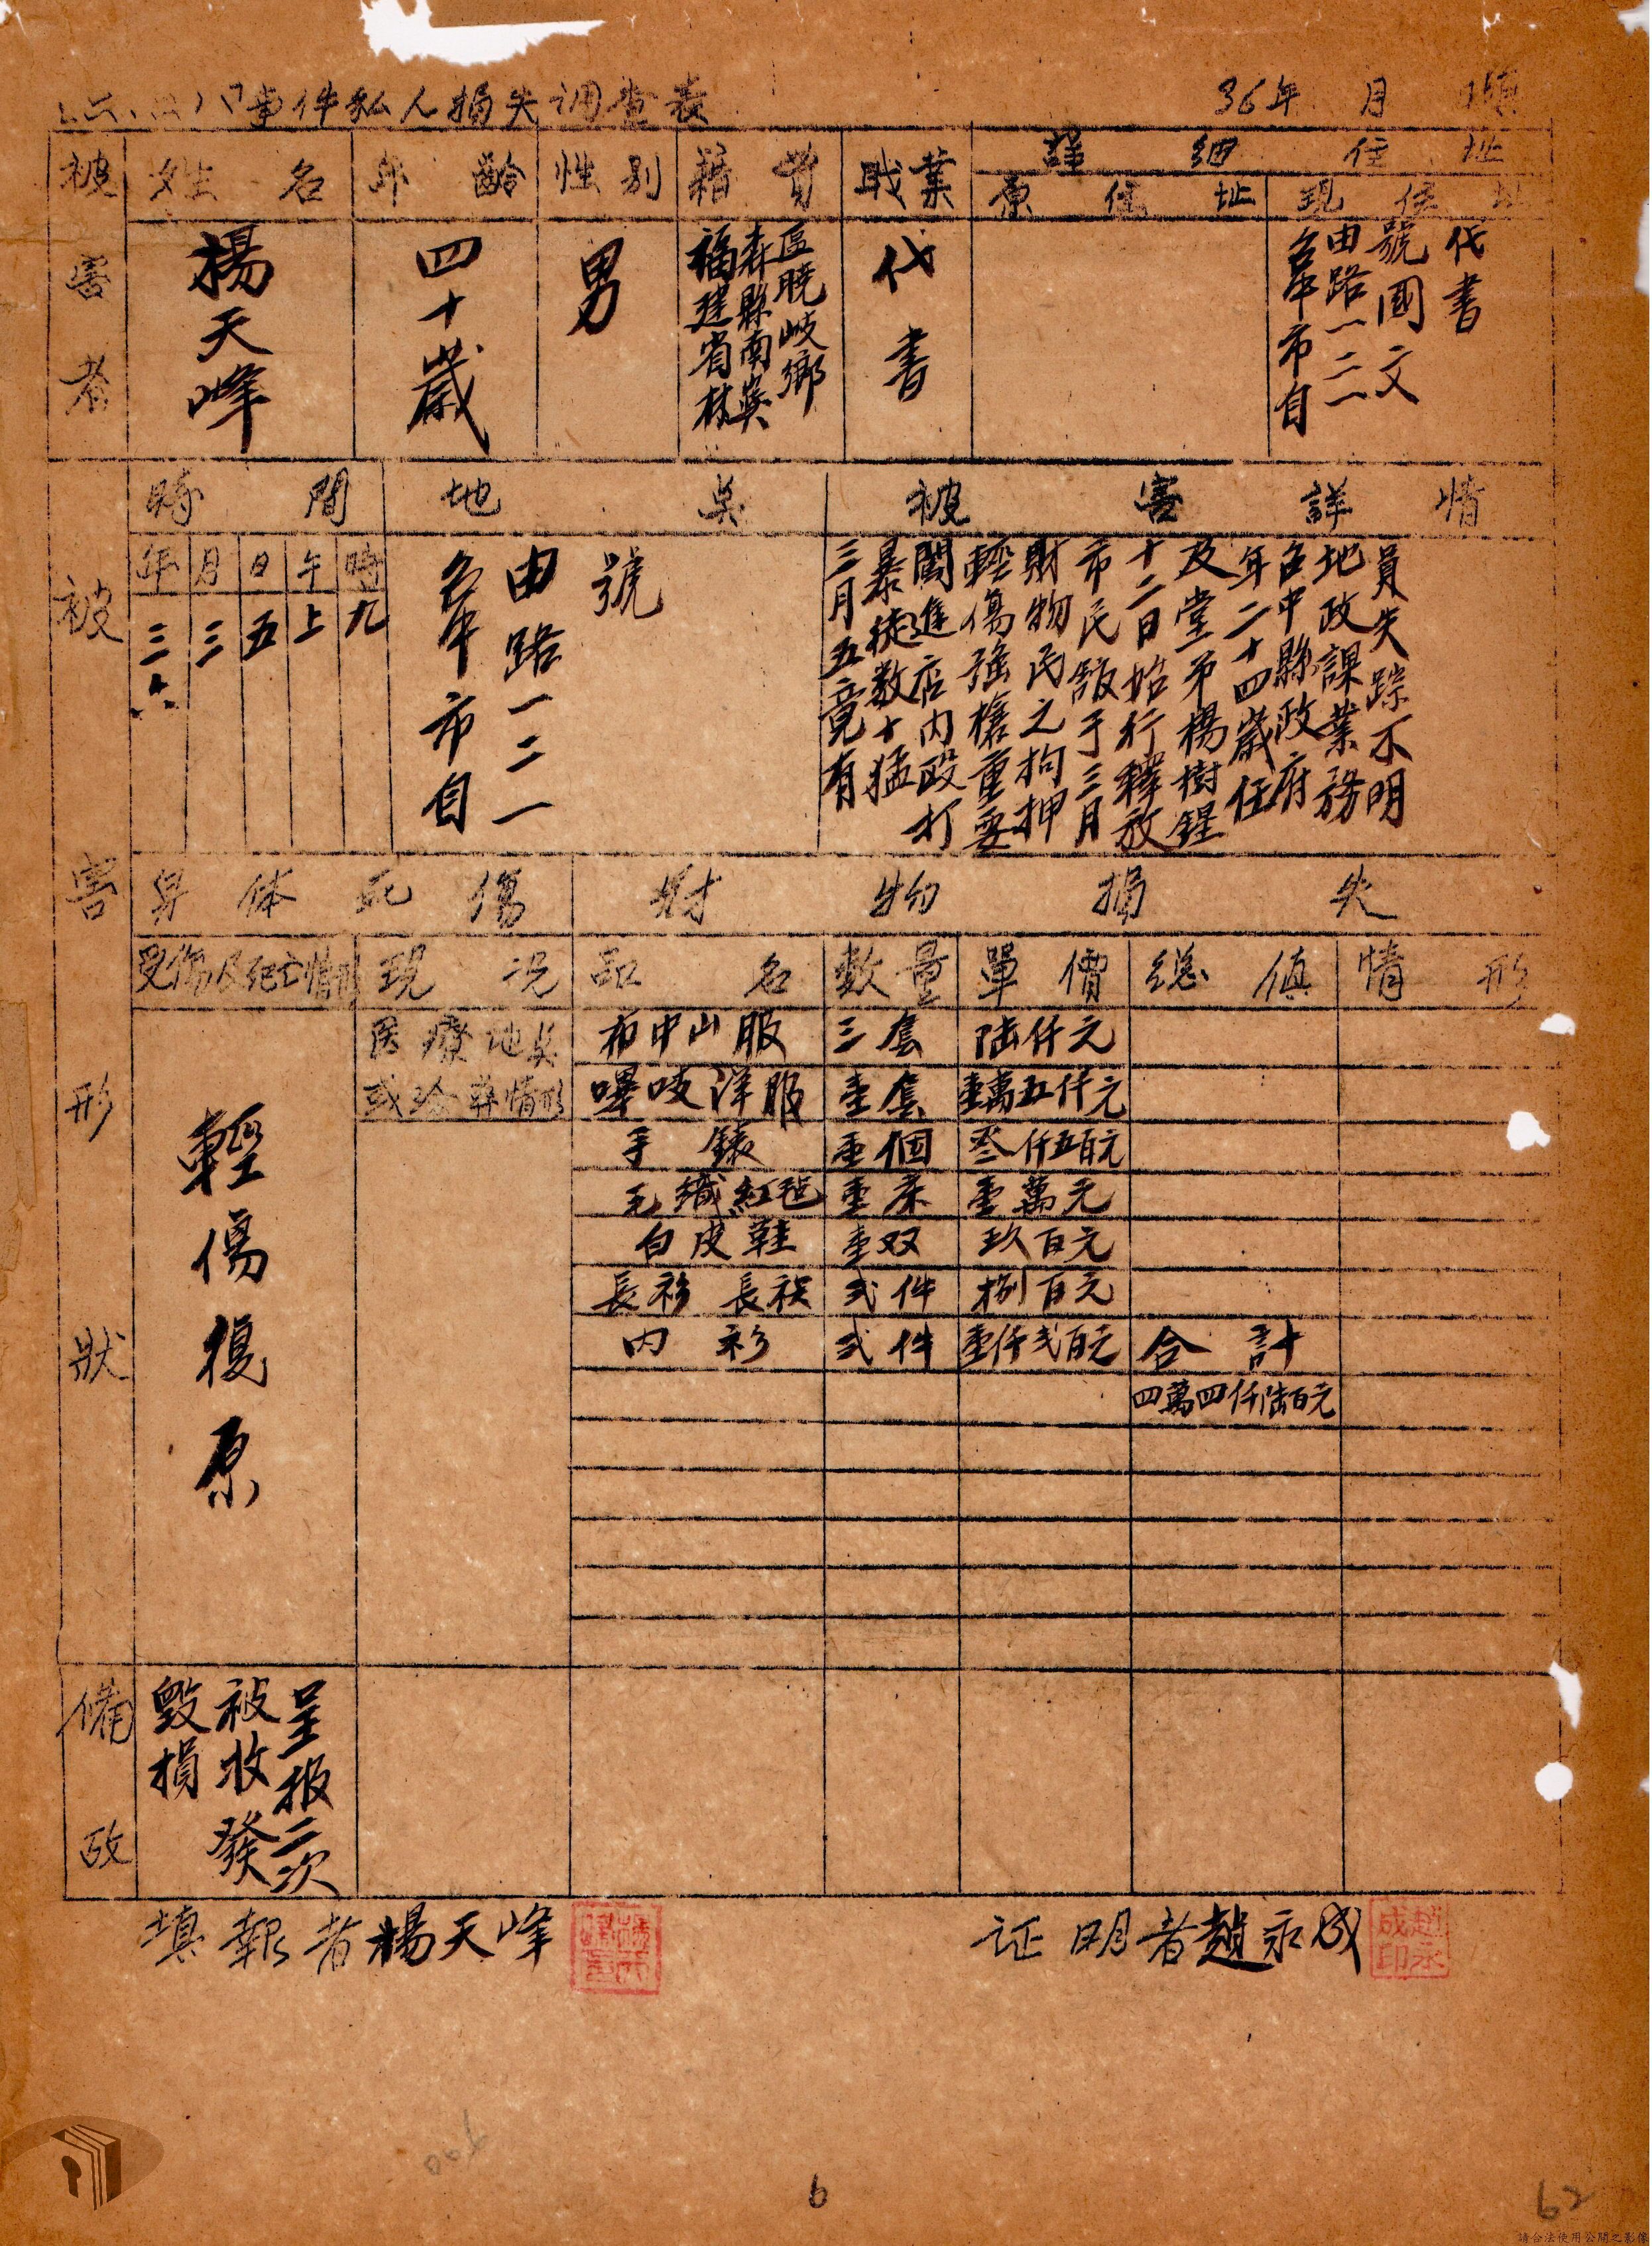 二二八事件私人損失调查表
36年 月 填
被害者
姓名
年齡
性別
籍貫
職業
詳細住址
原住址
現住址
楊天峰
四十歲
男
福建省林
森縣南嶼
區曉岐鄉
代書
台中市自
由路一二一
號國文
代書
被害形狀
時間
地點
被害詳情
年
月
日
午
時
三六
三
五
上
九
台中市自
由路一二一
號
三月五竟有
暴徒数十猛
闖進店内毆打
輕傷强搶重要
財物民之拘押
市民舘于三月
十二日始行釋放
及堂弟楊樹鋥
年二十四歲任
台中縣政府
地政課業務
員失踪不明
身体死傷
財物損失
受傷及死亡情形
現况
品名
数量
單價
総值
情形
医療地点
或殓葬情形
輕傷復原
布中山服 三套 陆仟元
嗶吱洋服 壹套 壹萬五仟元
手錶 壹個 叁仟五百元
毛織紅毯 壹床 壹萬元
白皮鞋 壹双 玖百元
長衫 長袄 弍件 捌百元
内衫 弍件 壹仟弍百元 合計
四萬四仟陆百元
備攷
呈报二次
被收發
毀損
填報者楊天峰
证明者趙永成
趙永成印
6
62
請合法使用公開之影像